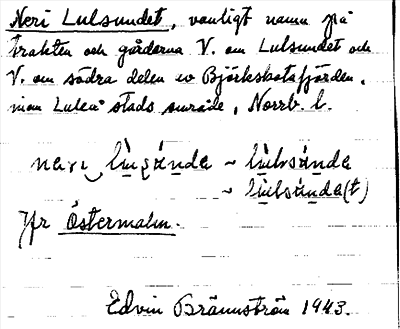 Neri Lulsundet, vanligt namn på
trakten och gårdarna V. om Lulsundet och
V. om södra delen av Björkskatafjärden,
inom Luleå stads område, Norrb. l.
Jfr Östermalm.
Edvin Brännström 1943.